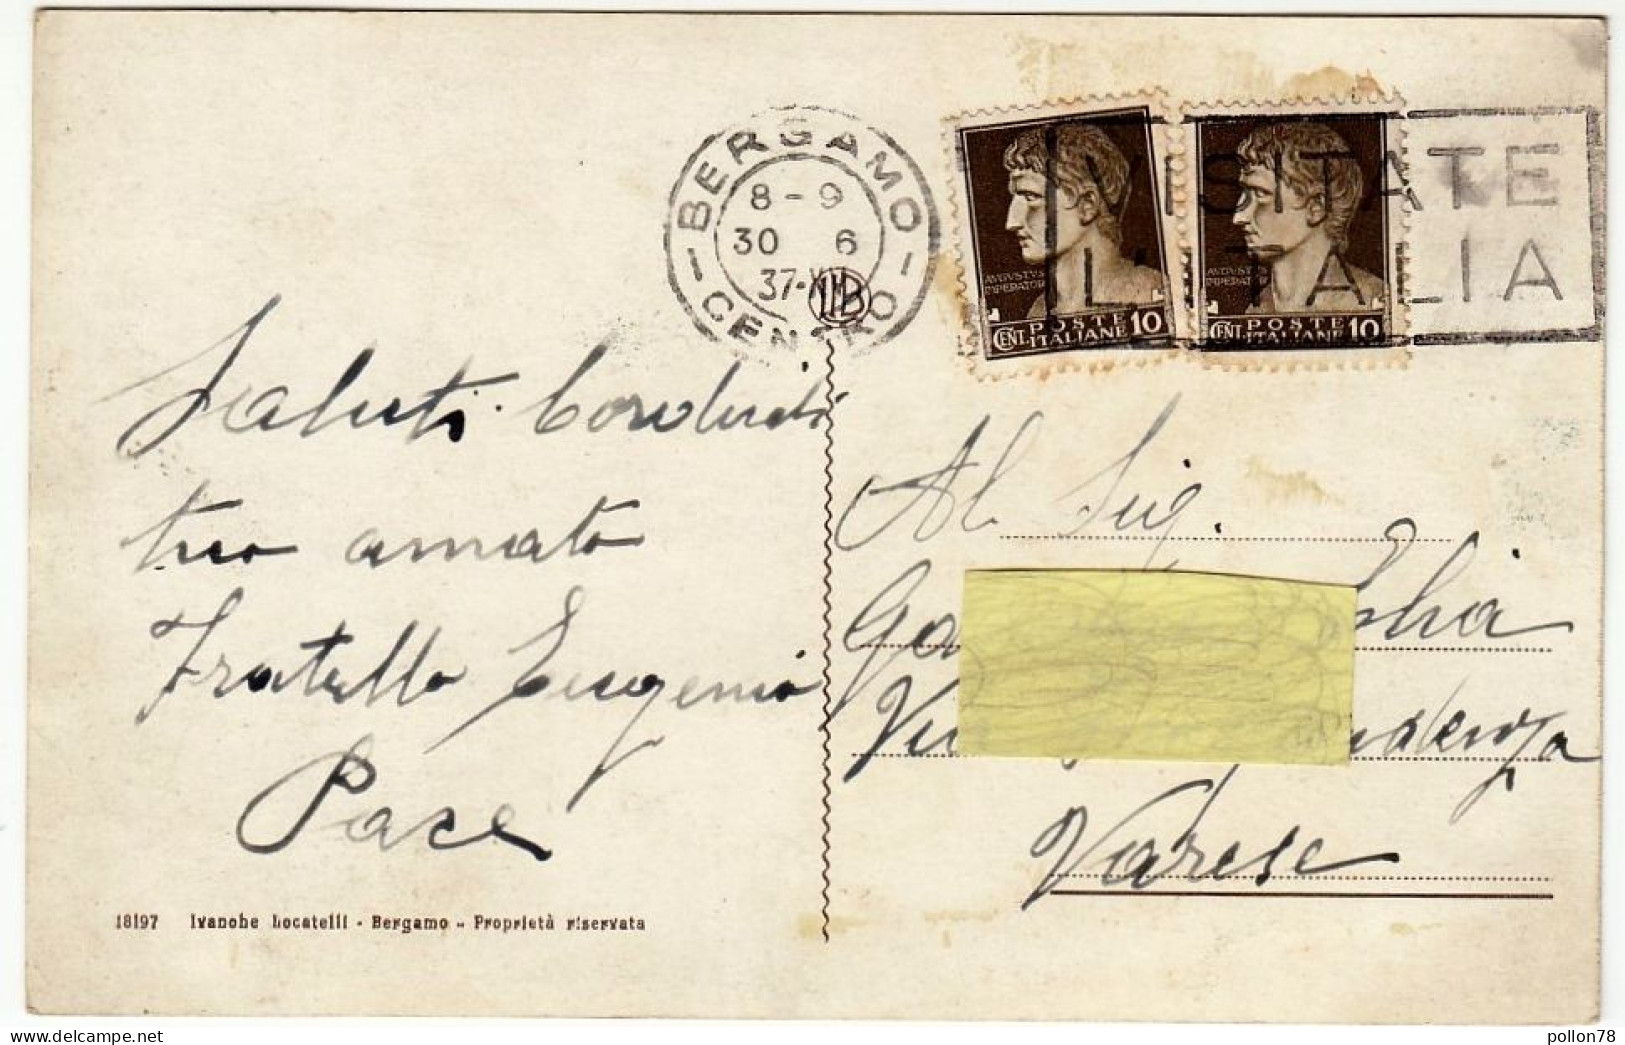 BERGAMO
8 - 9
30 6
37-XV
- CENTRO -
VISITATE
L'ITALIA
AVGVSTVS
IMPERATOR
POSTE
CENT. ITALIANE 10
AVGVSTVS
IMPERATOR
POSTE
CENT. ITALIANE 10
Saluti Cordiali
tuo amato
Fratello Eugenio
Pace
Al Sig.
Via
Varese
18197 Ivanohe Locatelli - Bergamo - Proprietà riservata
delcampe.net
pollon78